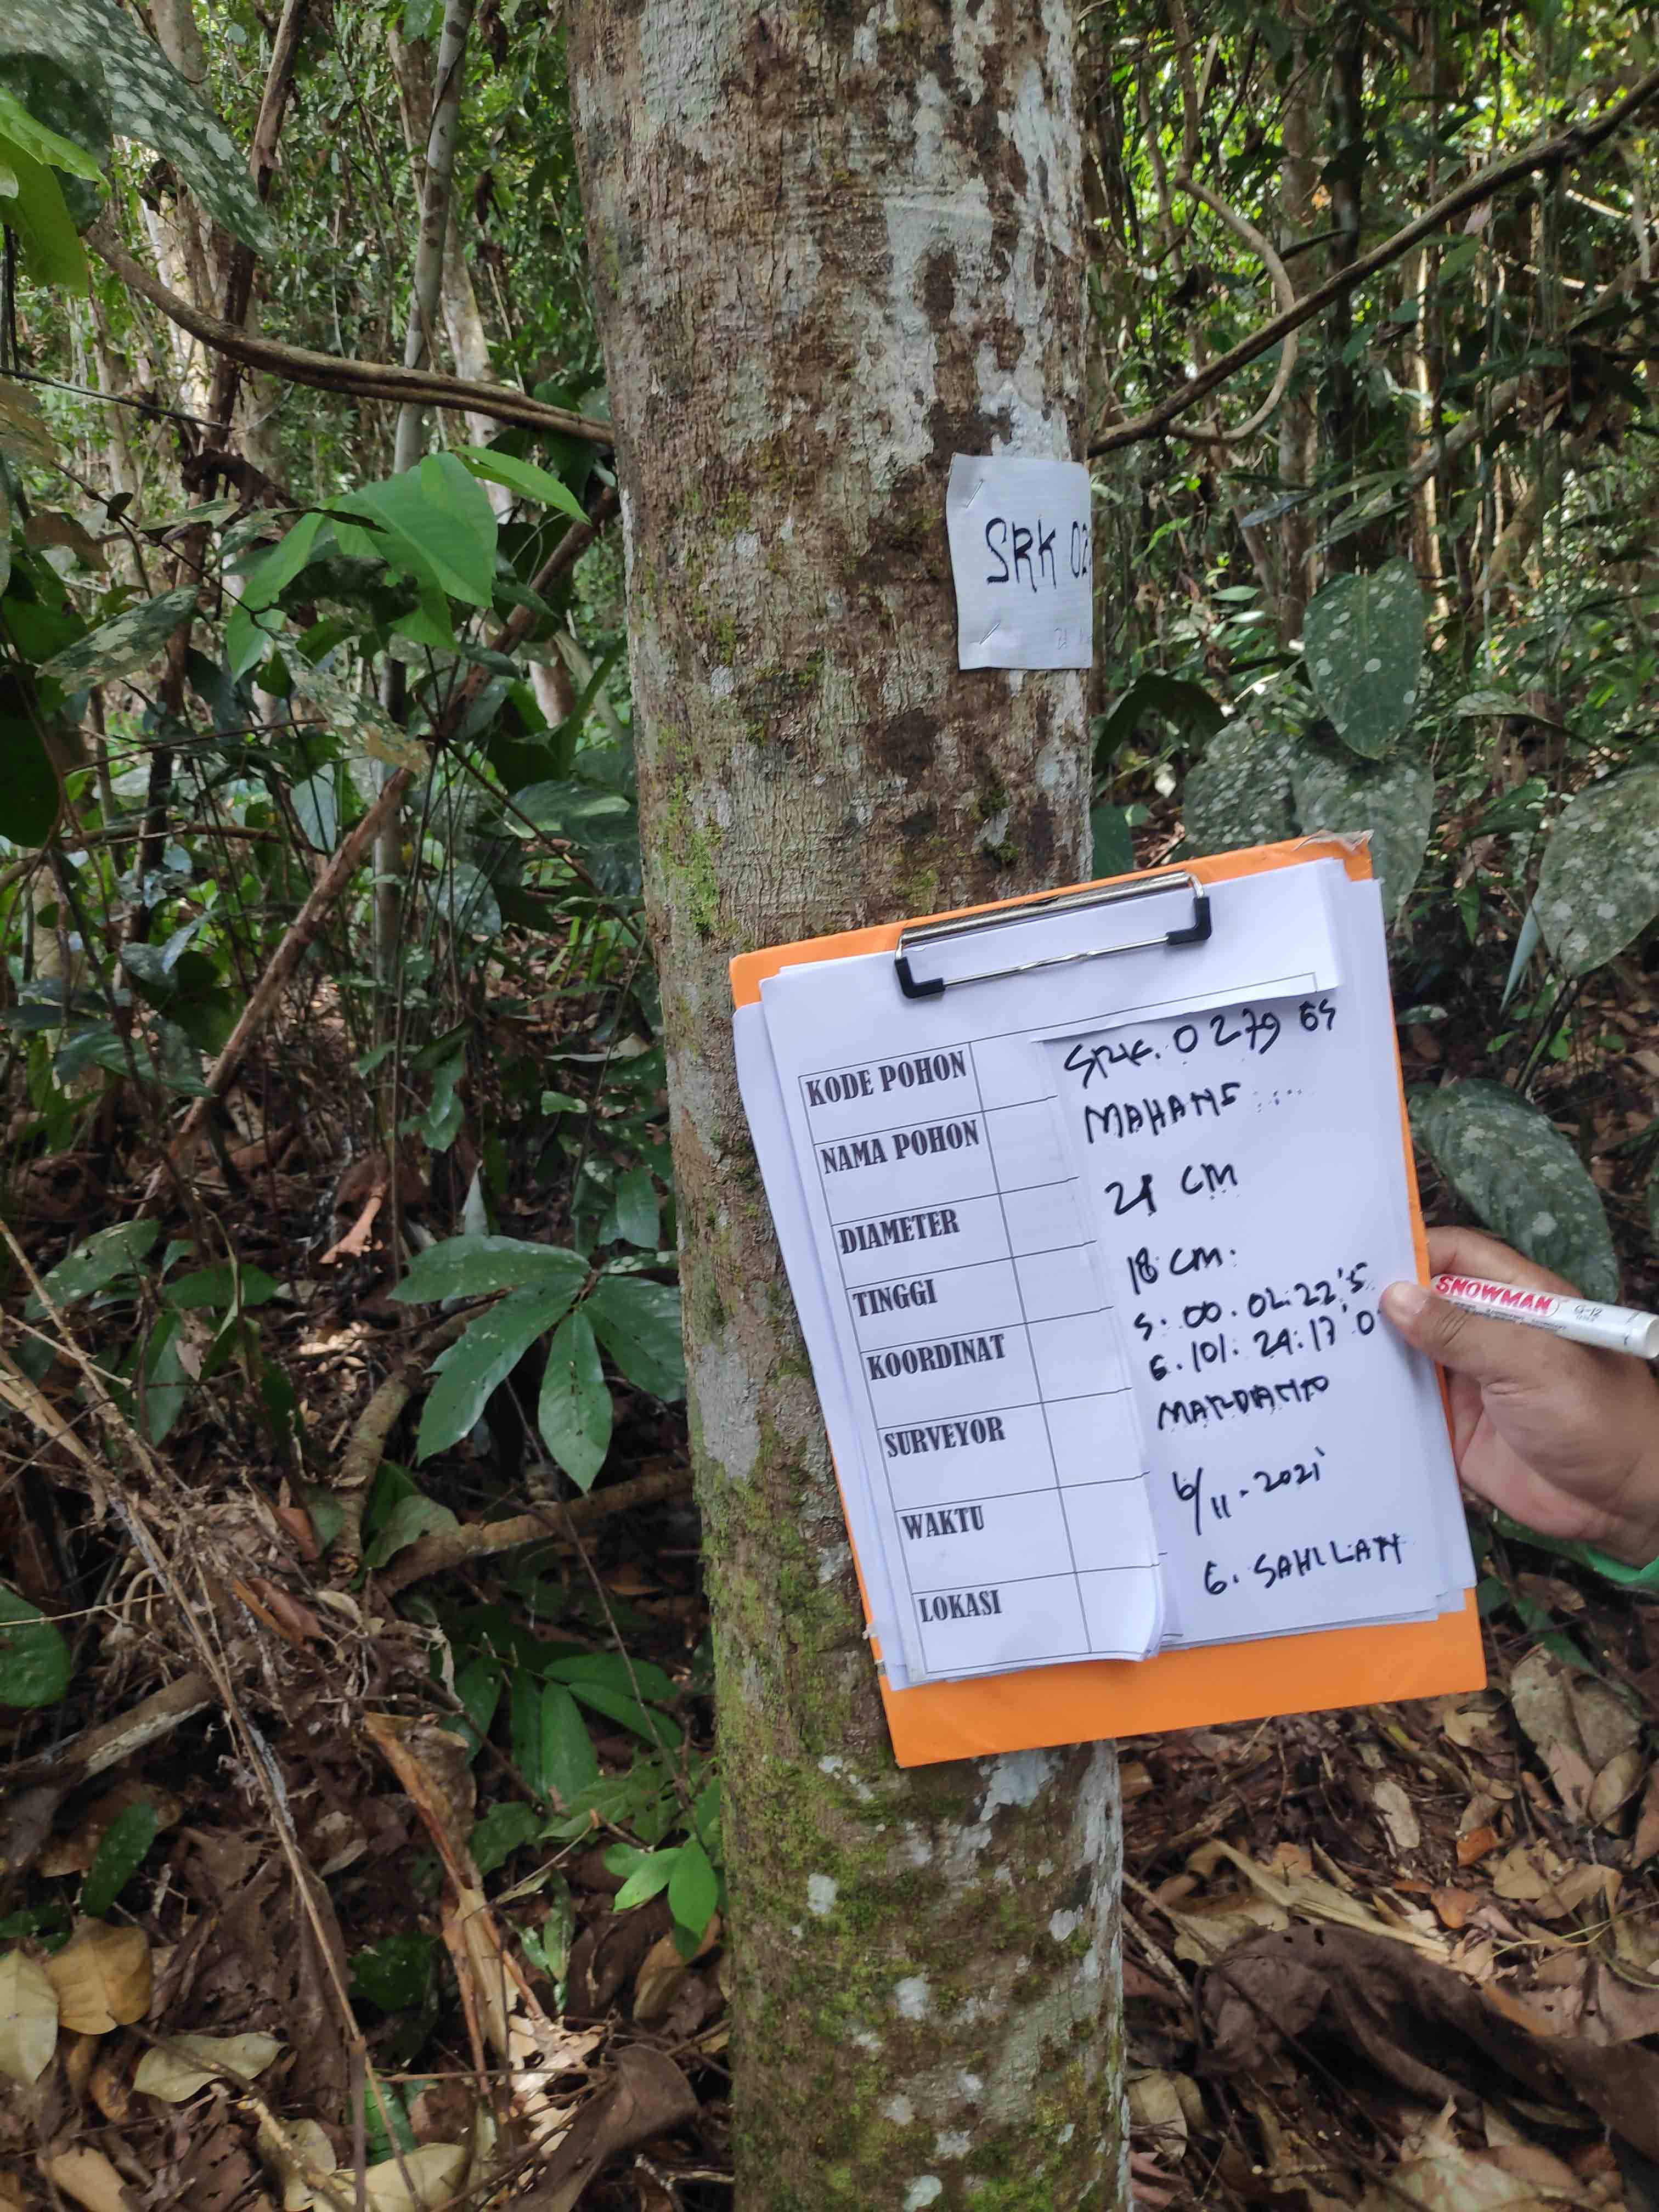 SRK 02
KODE POHON SRK. 0279 GS
NAMA POHON MAHANE
DIAMETER 21 CM
TINGGI 18 CM.
KOORDINAT S. 00. 02. 22'5
E. 101. 24. 17'0
SURVEYOR MARDIANTO
WAKTU 6/11-2021
LOKASI G. SAHILAN
SNOWMAN G-12